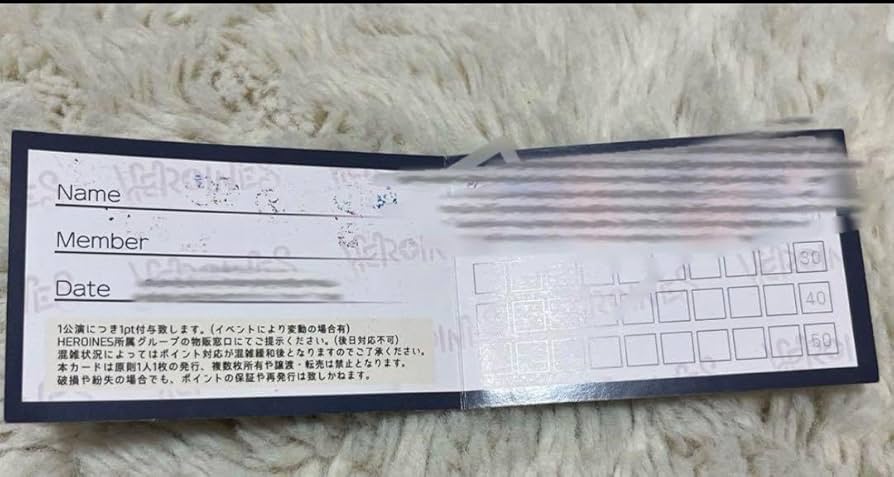 HEROINES
Name
Member
Date
1公演につき1pt付与致します。(イベントにより変動の場合有)
HEROINES所属グループの物販窓口にてご提示ください。(後日対応不可)
混雑状況によってはポイント対応が混雑緩和後となりますのでご了承ください。
本カードは原則1人1枚の発行、複数枚所有や譲渡・転売は禁止となります。
破損や紛失の場合でも、ポイントの保証や再発行は致しかねます。
30
40
50